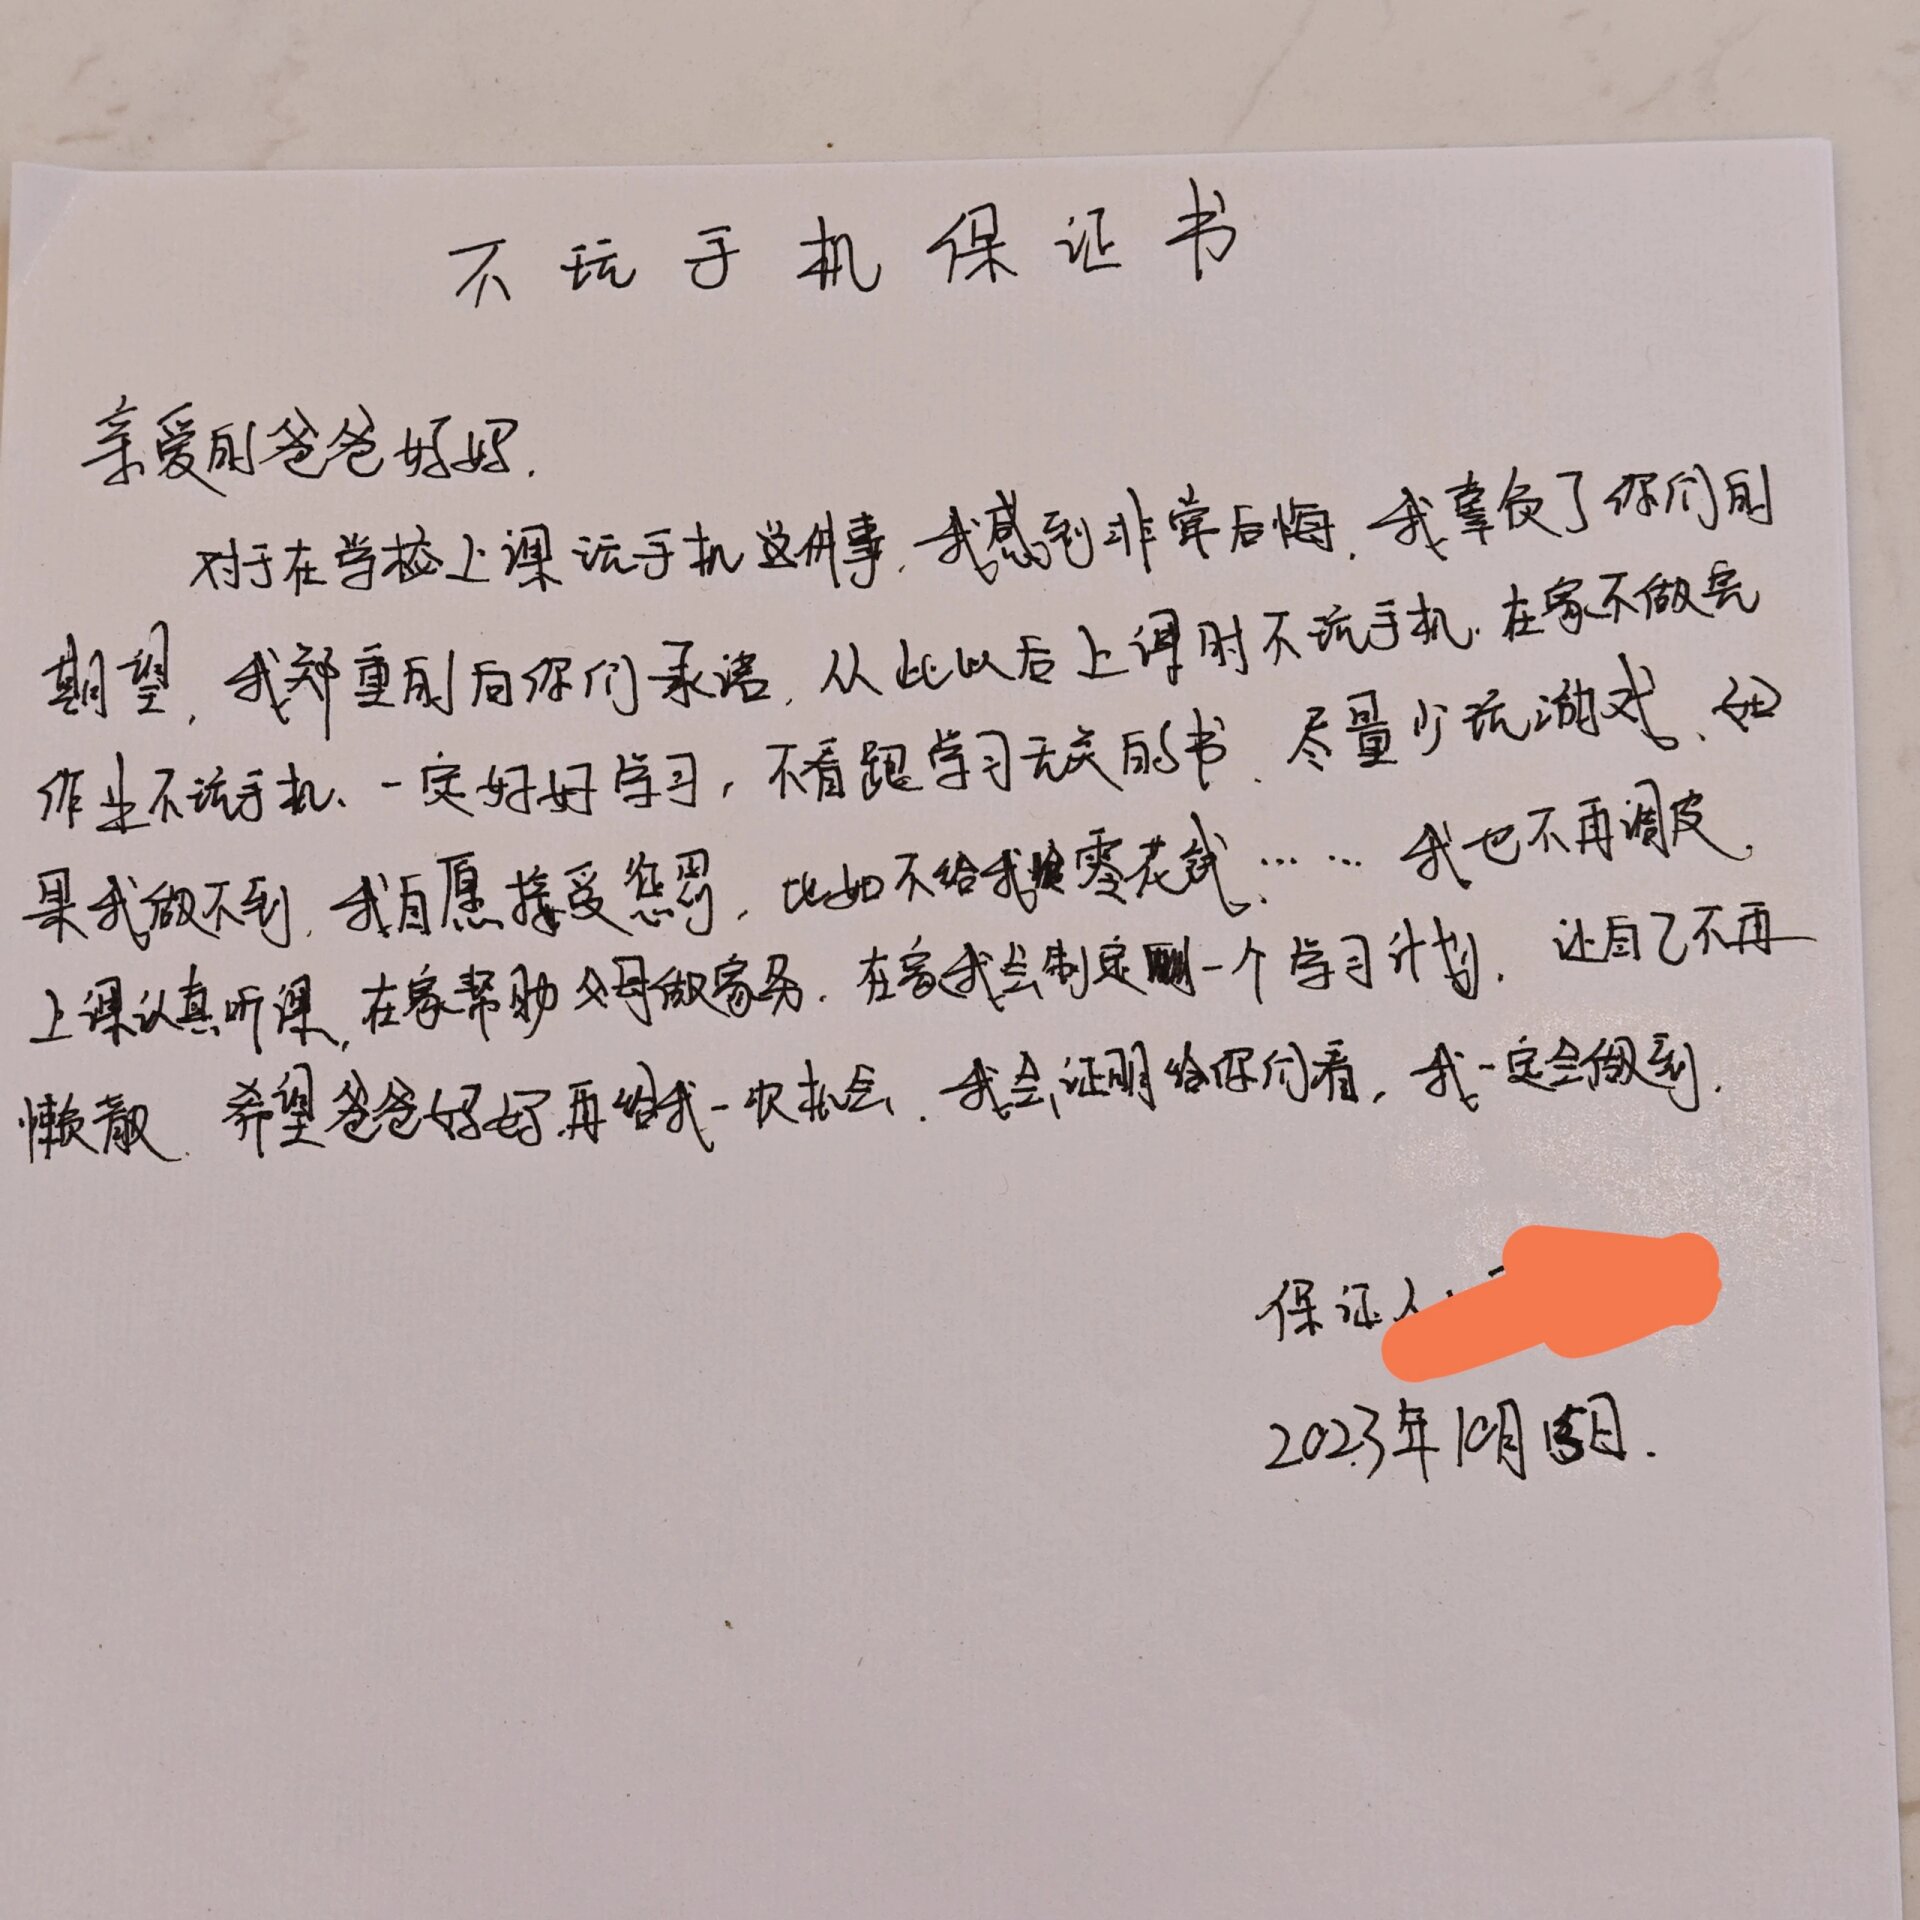 不玩手机保证书
亲爱的爸爸妈妈.
对于在学校上课玩手机这件事,我感到非常后悔,我辜负了你们的
期望,我郑重的向你们承诺,从此以后上课时不玩手机.在家不做完
作业不玩手机、一定好好学习,不看跟学习无关的书.尽量少玩游戏、如
果我做不到,我自愿接受惩罚,比如不给我零花钱……我也不再调皮.
上课认真听课,在家帮助父母做家务.在家我会制定一个学习计划.让自己不再
懒散.希望爸爸妈妈再给我一次机会.我会证明给你们看,我一定会做到.
保证人:
2023年10月15日.